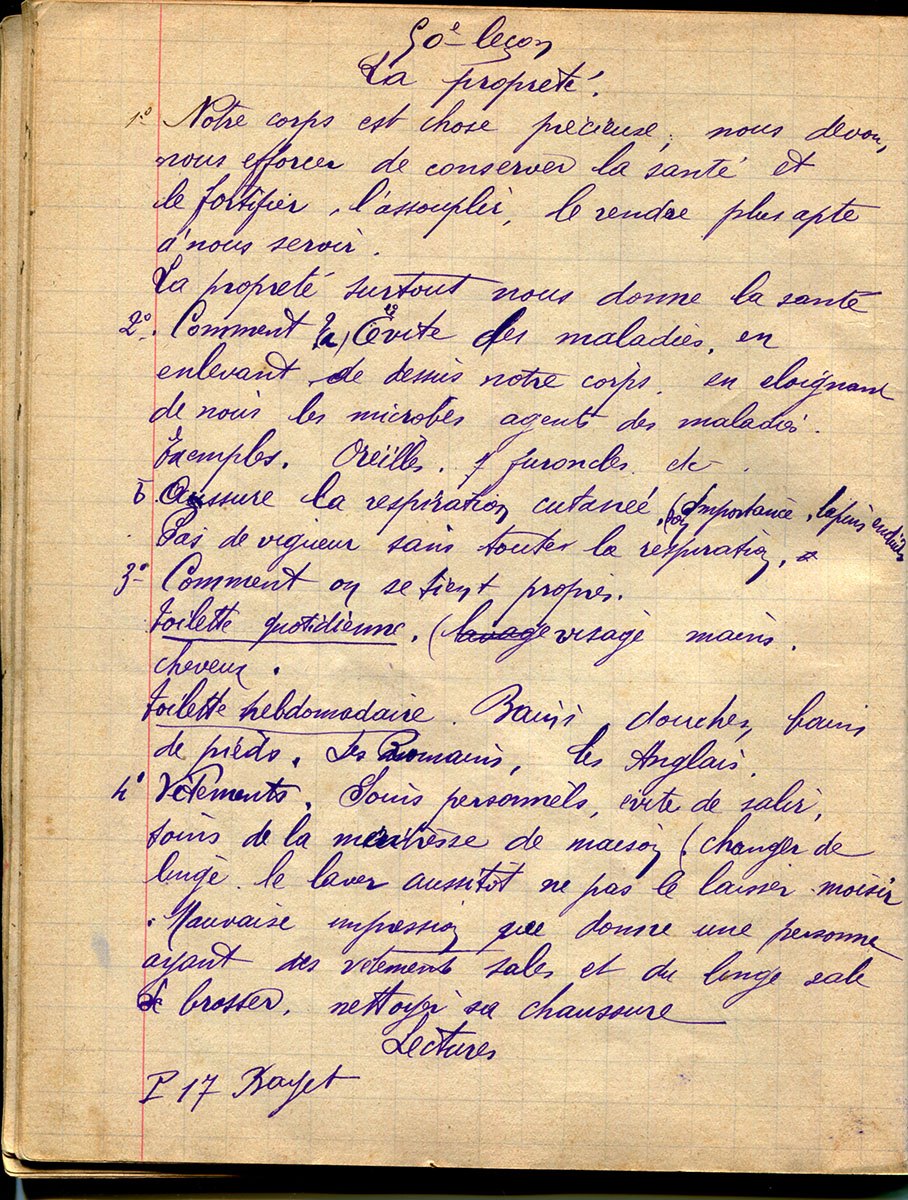 50e leçon
La propreté.
1º Notre corps est chose précieuse, nous devons
nous efforcer de conserver la santé et
le fortifier, l'assouplir, le rendre plus apte
à nous servir.
La propreté surtout nous donne la santé
2º. Comment a) Évite des maladies, en
enlevant de dessus notre corps. en eloignant
de nous les microbes agents des maladies.
Exemples. Oreilles. furoncles. etc
b Assure la respiration cutanée, (son importance, lapin enduit
Pas de vigueur sans toute la respiration.
3º Comment on se tient propre.
toilette quotidienne. (lavage visage mains.
cheveux.
toilette hebdomadaire. Bains douches, bains
de pieds. Les Romains, les Anglais.
4º Vêtements. Soins personnels, évite de salir,
soins de la maîtresse de maison (changer de
linge. le laver aussitôt ne pas le laisser moisir
. Mauvaise impression que donne une personne
ayant des vêtements sales et du linge sale
Se brosser, nettoyer sa chaussure
Lectures
P 17 Bayet